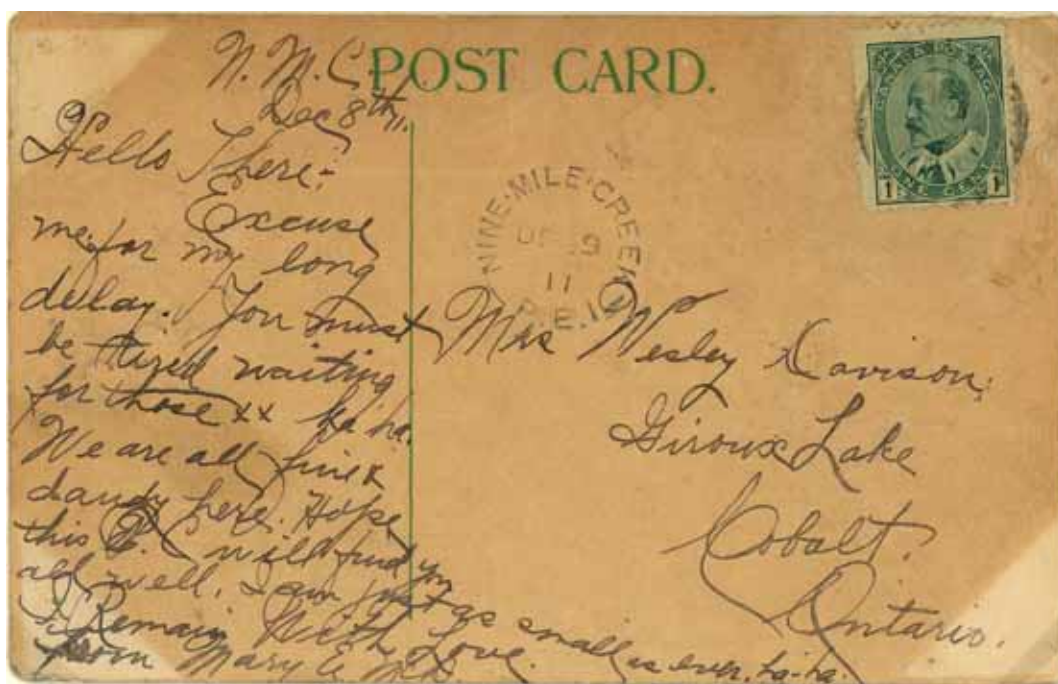 POST CARD.
N. M. C.
Dec 8th, 11.
Hello There:-
Excuse
me for my long
delay. You must
be tired waiting
for those xx ha ha.
We are all fine &
dandy here. Hope
this P.C. will find you
all well. I am just as small as ever. ha-ha.
I Remain With Love.
from Mary E.
CANADA POSTAGE
1 ONE CENT 1
NINE·MILE·CREEK
DE 9
11
P.E.I.
Mrs Wesley Davison,
Giroux Lake
Cobalt.
Ontario.